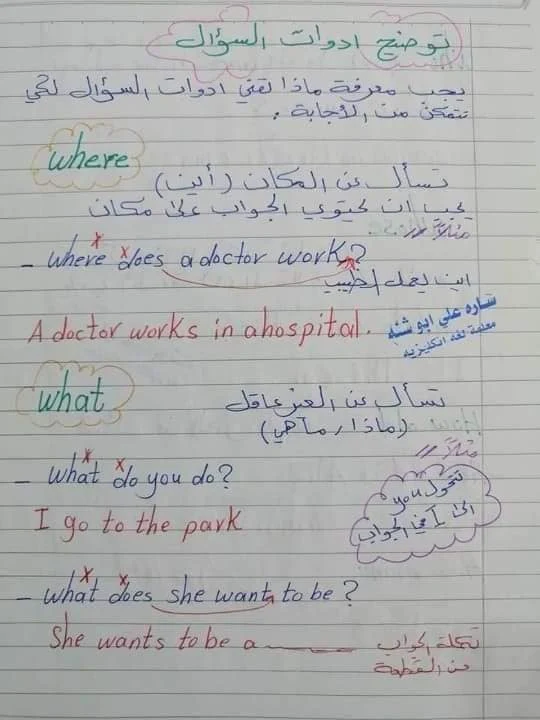 توضيح ادوات السؤال
يجب معرفة ماذا تعني ادوات السؤال لكي
نتمكن من الأجابة .
where
تسأل عن المكان (أين)
يجب ان يحتوي الجواب على مكان
مثلاً //
- where does a doctor work?
اين يعمل الطبيب
A doctor works in a hospital.
ساره علي ابو شنه
معلمة لغة انكليزيه
what
تسأل عن الغير عاقل
(ماذا , ماهي)
مثلاً //
- what do you do?
تتحول you
الى I في الجواب
I go to the park
- what does she want to be?
She wants to be a ______
تكملة الجواب
من القطعة